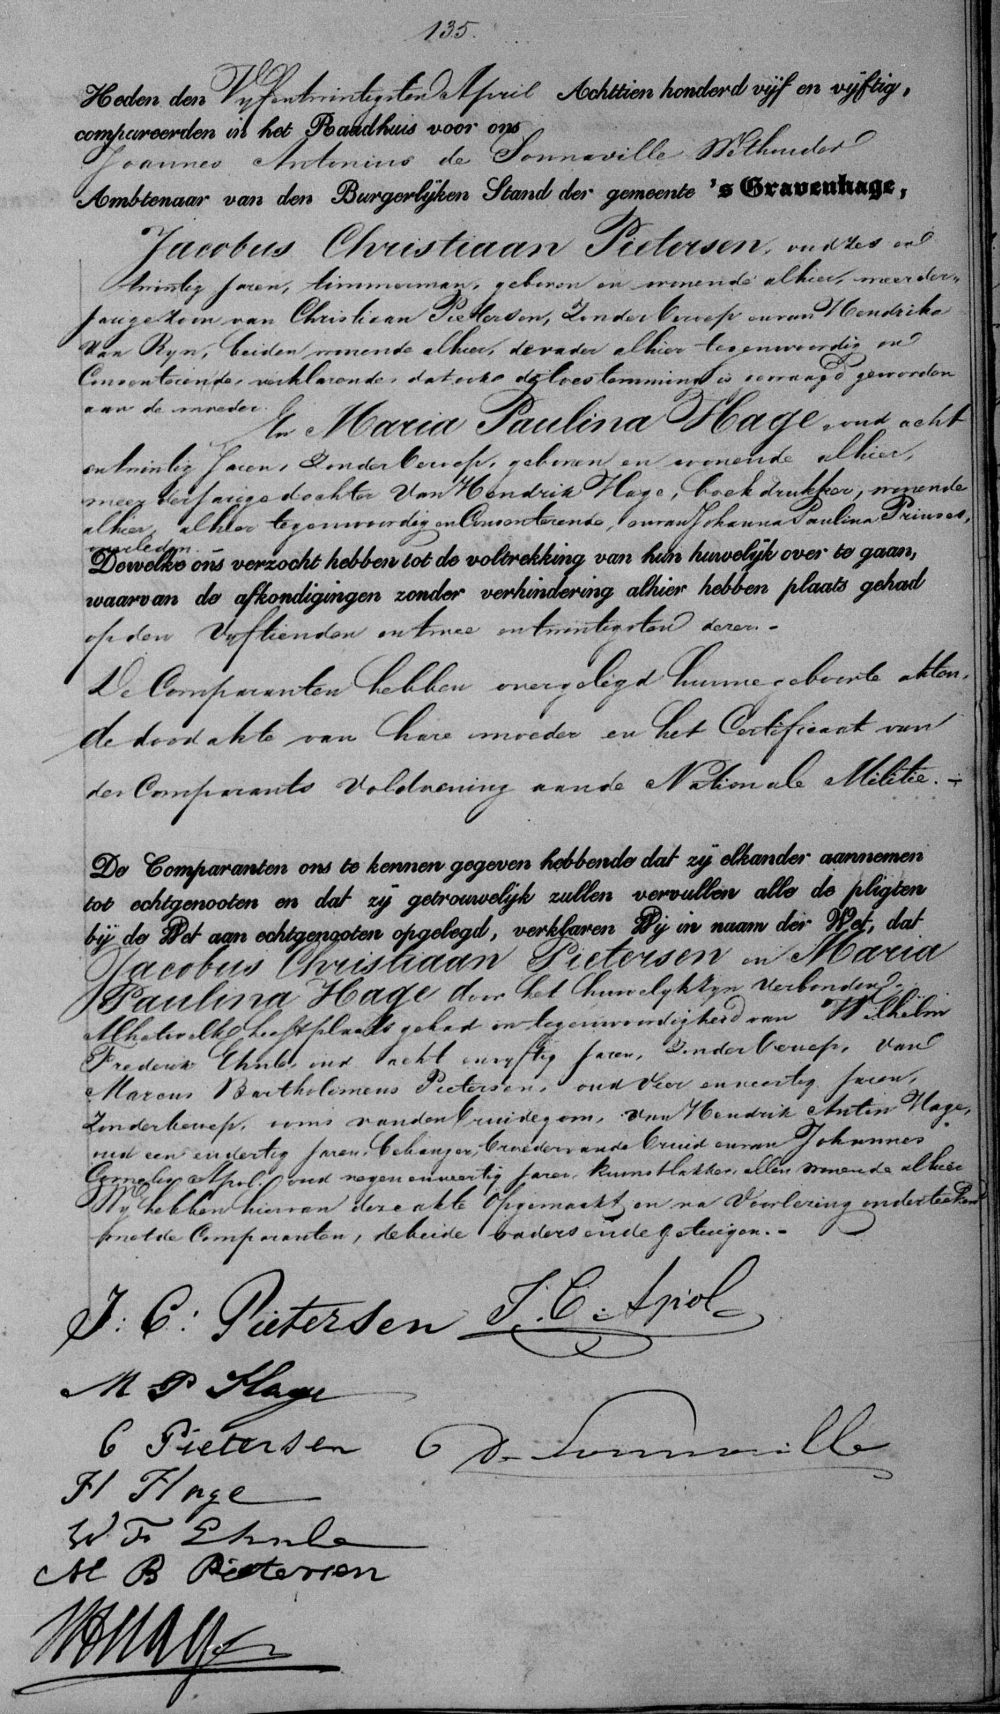 135.
Heden den Vyfentwintigsten April Achttien honderd vijf en vijftig,
compareerden in het Raadhuis voor ons
Joannes Antonius de Sonnaville Wethouder
Ambtenaar van den Burgerlijken Stand der gemeente 's Gravenhage,
Jacobus Christiaan Pietersen, oud zes en
twintig Jaren, timmerman, geboren en wonende alhier, meerder-
jarige zoon van Christiaan Pietersen, Zonder beroep en van Hendrika
van Ryn, beiden wonende alhier, de vader alhier tegenwoordig en
Consenterende, verklarende dat ook de toestemming is gevraagd geworden
aan de moeder.
En Maria Paulina Hage, oud acht
entwintig Jaren, Zonder beroep, geboren en wonende alhier,
meerderjarige dochter van Hendrik Hage, boekdrukker, wonende
alhier, alhier tegenwoordig en Consenterende, en van Johanna Paulina Prinses,
overleden.
Dewelke ons verzocht hebben tot de voltrekking van hun huwelijk over te gaan,
waarvan de afkondigingen zonder verhindering alhier hebben plaats gehad
op den Vyftienden en twee entwintigsten dezer.-
De Comparanten hebben overgelegd hunne geboorte akten,
de dood akte van hare moeder en het Certificaat van
des Comparants voldoening aan de Nationale Militie.-
De Comparanten ons te kennen gegeven hebbende dat zij elkander aannemen
tot echtgenooten en dat zij getrouwelijk zullen vervullen alle de pligten
bij de Wet aan echtgenooten opgelegd, verklaren Wij in naam der Wet, dat
Jacobus Christiaan Pietersen en Maria
Paulina Hage door het huwelyk zyn verbonden.
Alhetwelk heeft plaats gehad in tegenwoordigheid van Wilhelm
Frederik Ehnle, oud acht envyftig Jaren, Zonder beroep, van
Marcus Bartholomeus Pietersen, oud vier enveertig Jaren,
Zonder beroep, ooms van den bruidegom, van Hendrik Anton Hage,
oud een endertig Jaren, behanger, broeder van de bruid en van Johannes
Cornelis Apol, oud negen enveertig Jaren, kunstlakker, allen wonende alhier
Wy hebben hiervan deze akte opgemaakt en na Voorlezing onderteekend
met de Comparanten, de beide vaders en de getuigen.-
J: C: Pietersen J. C. Apol
M P Hage
C Pietersen de Sonnaville
H Hage
W F Ehnle
M B Pietersen
HA Hage